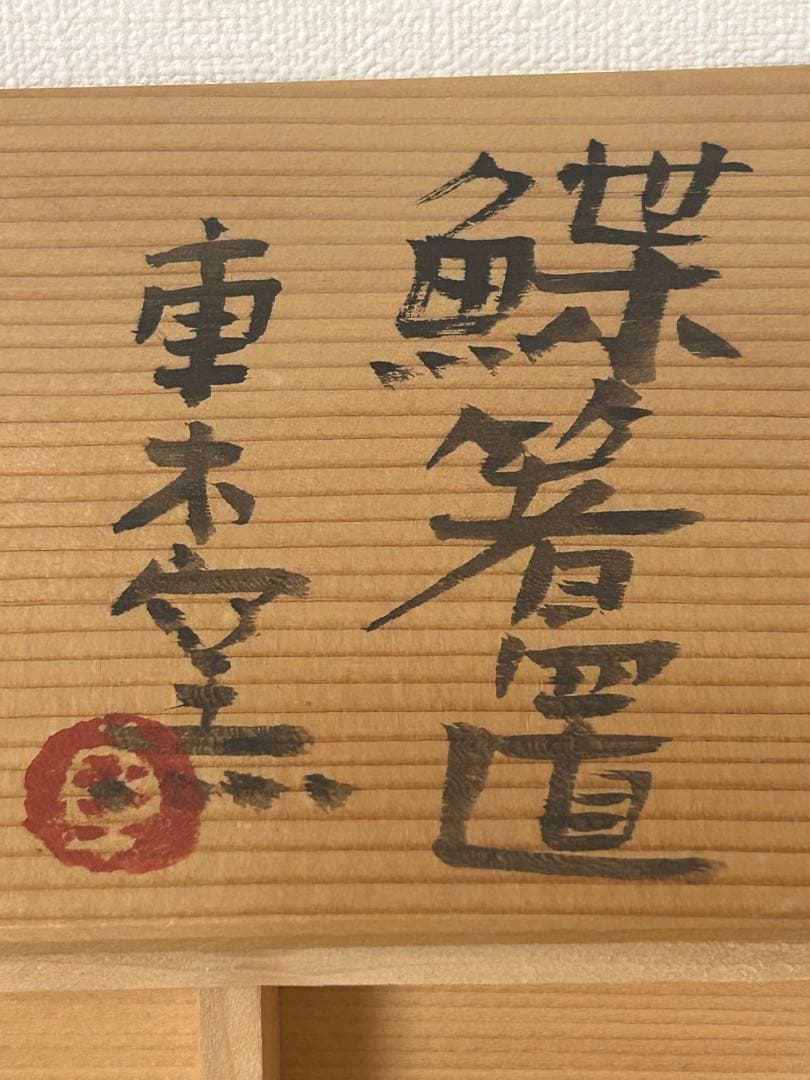 鰈箸置
重木窯